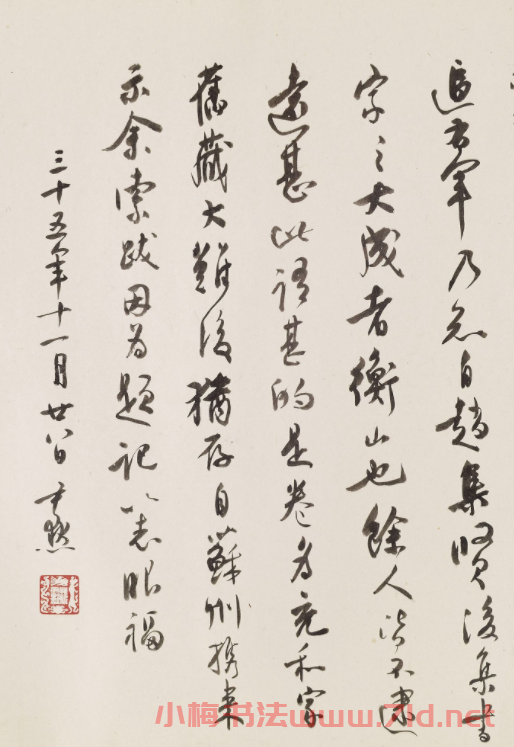 追右軍乃知自趙集賢後集書
家之大成者衡山也餘人皆不逮
遠甚此語甚的是卷為充和家
舊藏大難後猶存自蘇州携来
示余索跋因為題記以志眼福
三十五年十一月廿八日尹默
小梅书法www.7ld.net